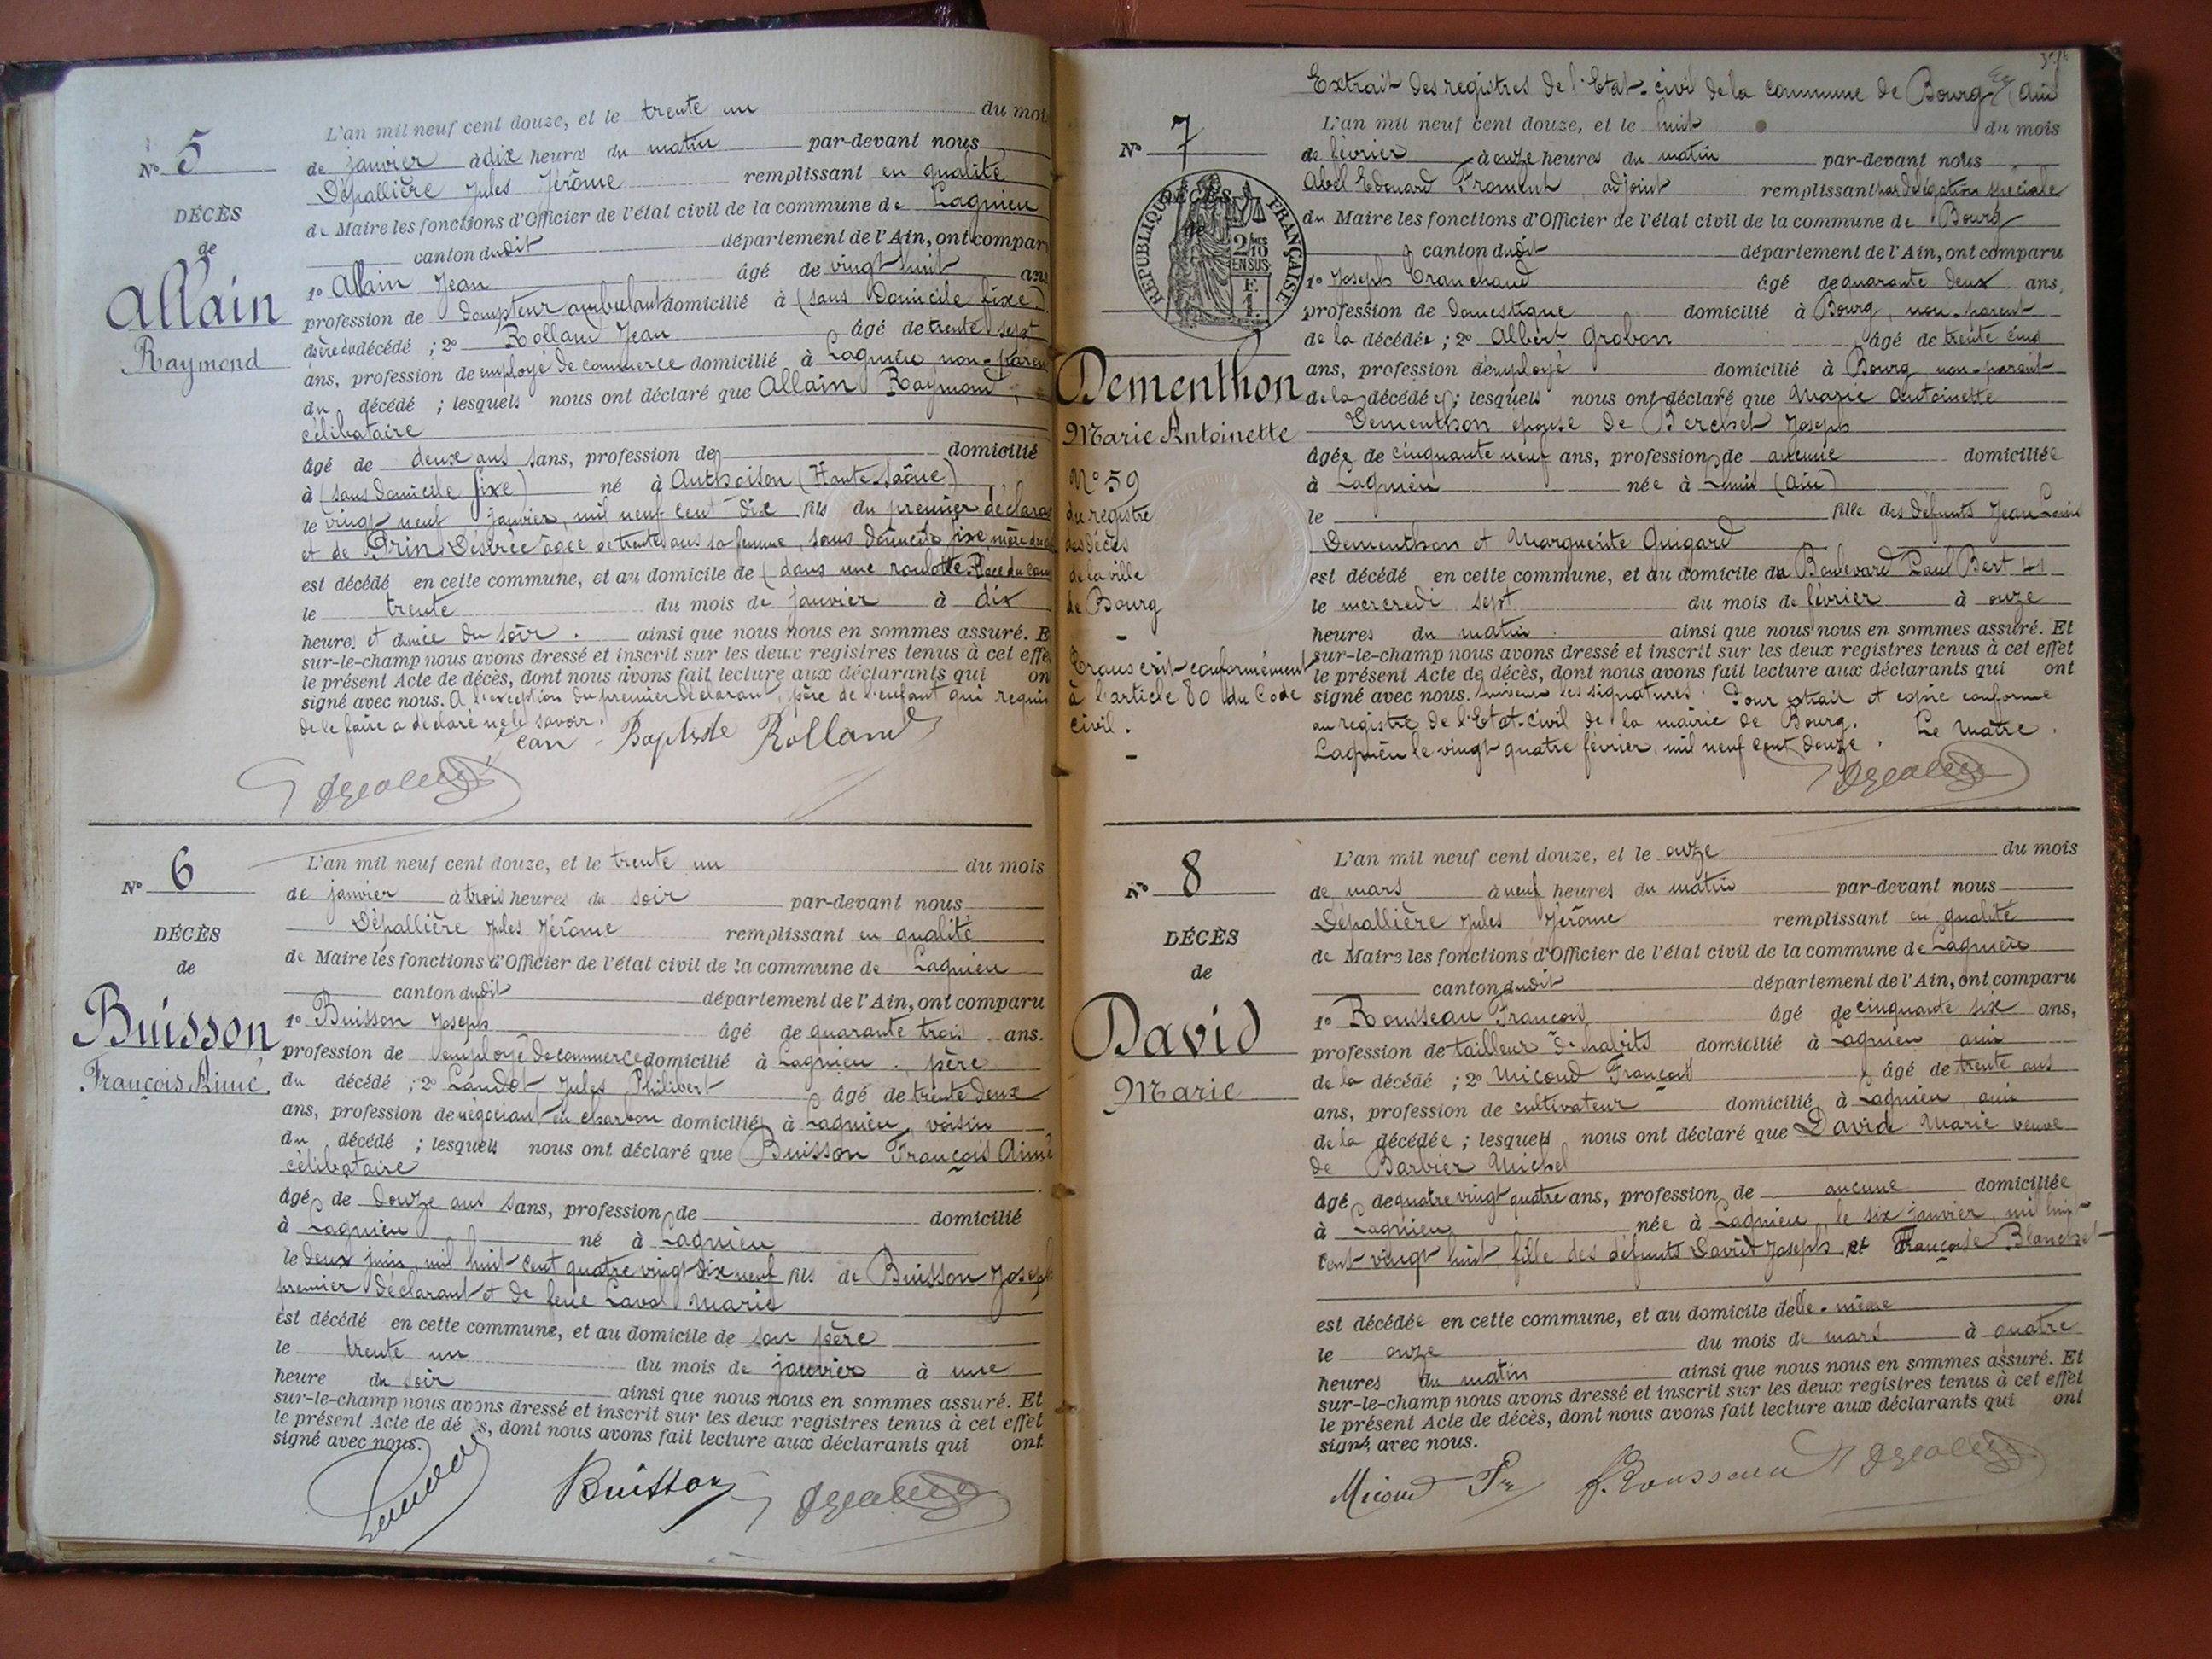 L'an mil neuf cent douze, et le trente un du mois
N° 5
de janvier à dix heures du matin par-devant nous
Dépallière Jules Jérôme remplissant en qualité
DÉCÈS
de Maire les fonctions d'Officier de l'état civil de la commune de Lagnieu
de
canton dudit département de l'Ain, ont compar
Allain
1° Allain Jean âgé de vingt huit ans
Raymond
profession de dompteur ambulant domicilié à (sans domicile fixe)
père du décédé ; 2° Rolland Jean âgé de trente sept
ans, profession de employé de commerce domicilié à Lagnieu non-paren
du décédé ; lesquels nous ont déclaré que Allain Raymond
célibataire
âgé de deux ans sans, profession de domicilié
à (sans domicile fixe) né à Authoison (Haute-Saône)
le vingt neuf janvier, mil neuf cent dix fils du premier déclara
et de Brin Désirée âgée de trente ans sa femme, sans domicile fixe, mère du
est décédé en cette commune, et au domicile de (dans une roulotte Place du
le trente du mois de janvier à dix
heures et demie du soir. ainsi que nous nous en sommes assuré. E
sur-le-champ nous avons dressé et inscrit sur les deux registres tenus à cet effe
le présent Acte de décès, dont nous avons fait lecture aux déclarants qui on
signé avec nous. A l'exception du premier déclarant, père de l'enfant qui requis
de le faire a déclaré ne le savoir.
Jean-Baptiste Rolland
N° 6
L'an mil neuf cent douze, et le trente un du mois
de janvier à trois heures du soir par-devant nous
Dépallière Jules Jérôme remplissant en qualité
DÉCÈS
de Maire les fonctions d'Officier de l'état civil de la commune de Lagnieu
de
canton dudit département de l'Ain, ont comparu
Buisson
1° Buisson Joseph âgé de quarante trois ans.
François Aimé
profession de employé de commerce domicilié à Lagnieu, père
du décédé ; 2° Landot Jules Philibert âgé de trente deux
ans, profession de négociant en charbon domicilié à Lagnieu, voisin
du décédé ; lesquels nous ont déclaré que Buisson François Aimé
célibataire
âgé de douze ans sans, profession de domicilié
à Lagnieu né à Lagnieu
le deux juin, mil huit cent quatre vingt dix neuf fils de Buisson Joseph
premier déclarant et de feue Laval Marie
est décédé en cette commune, et au domicile de son père
le trente un du mois de janvier à une
heure du soir ainsi que nous nous en sommes assuré. Et
sur-le-champ nous avons dressé et inscrit sur les deux registres tenus à cet effet
le présent Acte de dé s, dont nous avons fait lecture aux déclarants qui ont
signé avec nous.
Buisson
Extrait des registres de l'Etat-civil de la commune de Bourg (Ain)
N° 7
L'an mil neuf cent douze, et le huit du mois
de février à onze heures du matin par-devant nous
Abel Edouard Froment, adjoint remplissant par délégation spéciale
du Maire les fonctions d'Officier de l'état civil de la commune de Bourg
DÉCÈS
de
REPUBLIQUE FRANÇAISE
2/10 EN SUS
F. 1.
canton dudit département de l'Ain, ont comparu
1° Joseph Tranchand âgé de quarante deux ans,
profession de domestique domicilié à Bourg, non-parent
de la décédée ; 2° Albert Grobon âgé de trente cinq
Dementhon
ans, profession d'employé domicilié à Bourg non-parent
de la décédée ; lesquels nous ont déclaré que Marie Antoinette
Marie Antoinette
Dementhon épouse de Berchet Joseph
âgée de cinquante neuf ans, profession de aucune domiciliée
N° 59
du registre
des décès
de la ville
de Bourg
à Lagnieu née à (Ain)
le fille des défunts Jean Louis
Dementhon et Marguerite Guigard
est décédé en cette commune, et au domicile du Boulevard Paul Bert 41
le mercredi sept du mois de février à onze
heures du matin. ainsi que nous nous en sommes assuré. Et
sur-le-champ nous avons dressé et inscrit sur les deux registres tenus à cet effet
Transcrit conformément
à l'article 80 du Code
civil.
le présent Acte de décès, dont nous avons fait lecture aux déclarants qui ont
signé avec nous. Suivent les signatures. Pour extrait et copie conforme
au registre de l'Etat-civil de la mairie de Bourg. Le Maire.
Lagnieu le vingt-quatre février, mil neuf cent douze.
N° 8
L'an mil neuf cent douze, et le onze du mois
de mars à neuf heures du matin par-devant nous
Dépallière Jules Jérôme remplissant en qualité
DÉCÈS
de Maire les fonctions d'Officier de l'état civil de la commune de Lagnieu
de
canton dudit département de l'Ain, ont comparu
David
1° Rousseau François âgé de cinquante six ans,
Marie
profession de tailleur d'habits domicilié à Lagnieu, ami
de la décédé ; 2° Micoud François âgé de trente ans
ans, profession de cultivateur domicilié à Lagnieu, ami
de la décédée ; lesquels nous ont déclaré que David Marie veuve
de Barbier Michel
âgé de quatre vingt quatre ans, profession de aucune domiciliée
à Lagnieu née à Lagnieu, le six janvier, mil huit
cent vingt huit fille des défunts David Joseph et Françoise Blanchet
est décédée en cette commune, et au domicile d'elle-même
le onze du mois de mars à quatre
heures du matin ainsi que nous nous en sommes assuré. Et
sur-le-champ nous avons dressé et inscrit sur les deux registres tenus à cet effet
le présent Acte de décès, dont nous avons fait lecture aux déclarants qui ont
signé avec nous.
Micoud Fr F. Rousseau